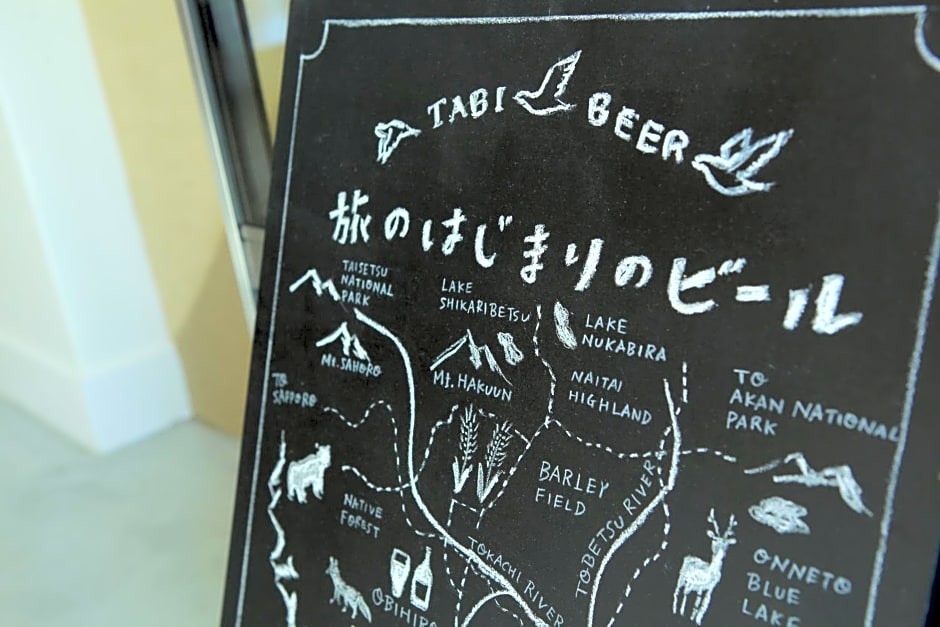 TABI BEER
旅のはじまりのビール
TAISETSU
NATIONAL
PARK
LAKE
SHIKARIBETSU
LAKE
NUKABIRA
Mt. SAHORO
Mt. HAKUUN
NAITAI
HIGHLAND
TO
AKAN NATIONAL
PARK
TO
SAPPORO
BARLEY
FIELD
NATIVE
FOREST
TOKACHI RIVER
TOBETSU RIVER
OBIHIRO
ONNETO
BLUE
LAKE